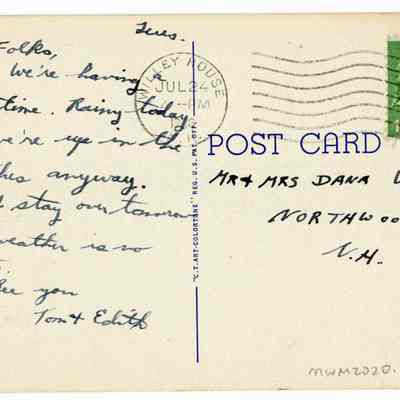 Tues.
Folks,
We're having a
time. Rainy today
we're up in the
anyway.
stay over tomorrow
weather is no
see you
Tom & Edith
WILLEY HOUSE
JUL 24
PM
"C.T. ART-COLORTONE" REG. U.S. PAT. OFF.
POST CARD
MR & MRS DANA
NORTHWOO
N.H.
MWM2020.